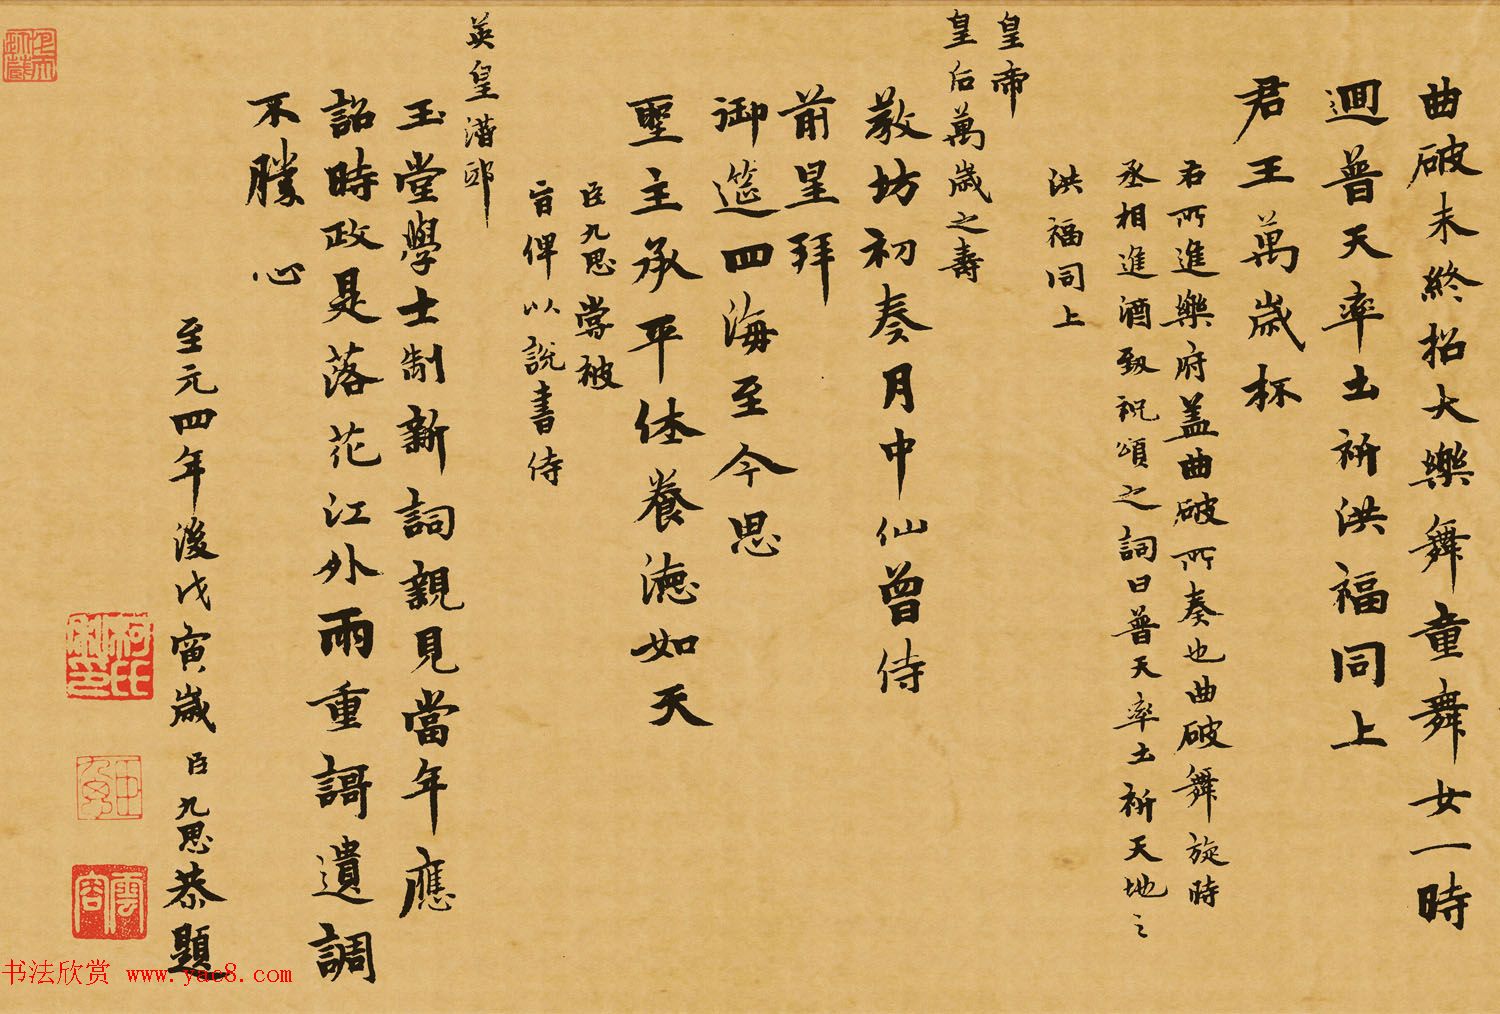 曲破未終招大樂舞童舞女一時
迴普天率土祈洪福同上
君王萬歲杯
右所進樂府蓋曲破所奏也曲破舞旋時
丞相進酒致祝頌之詞曰普天率土祈天地之
洪福同上
皇帝
皇后萬歲之壽
教坊初奏月中仙曾侍
前皇拜
御筵四海至今思
聖主承平佳養德如天
臣九思嘗被
旨俾以說書侍
英皇潛邸
玉堂學士制新詞親見當年應
詔時政是落花江外雨重謌遺調
不勝心
至元四年後戊寅歲臣九思恭題
柯氏敬仲
书法欣赏 www.yac8.com